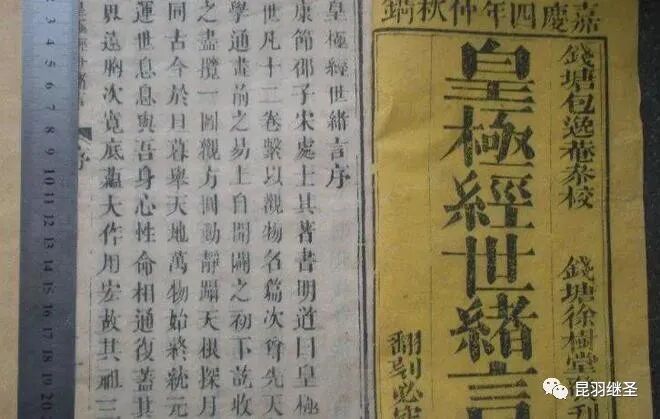 嘉慶四年仲秋鐫
錢塘包逸菴參校 錢塘徐樹堂刊
皇極經世緒言
翻刻必
皇極經世緒言序
康節邵子宋處士其著書明道曰皇極
經世凡十二卷繫以觀物名篇次先天
學通畫前之易上自開闢之初下訖收
之盡攬一圖觀方圓動靜躡天根探月
同古今於旦暮舉天地萬物始終統元
運世息息與吾身心性命相通復蓋其
具遠胸次寬底蘊大作用宏故其祖三
序
2 3 4 5 6 7 8 9 10 11 12 13 14 15 16 17 18 19 20
昆羽继圣